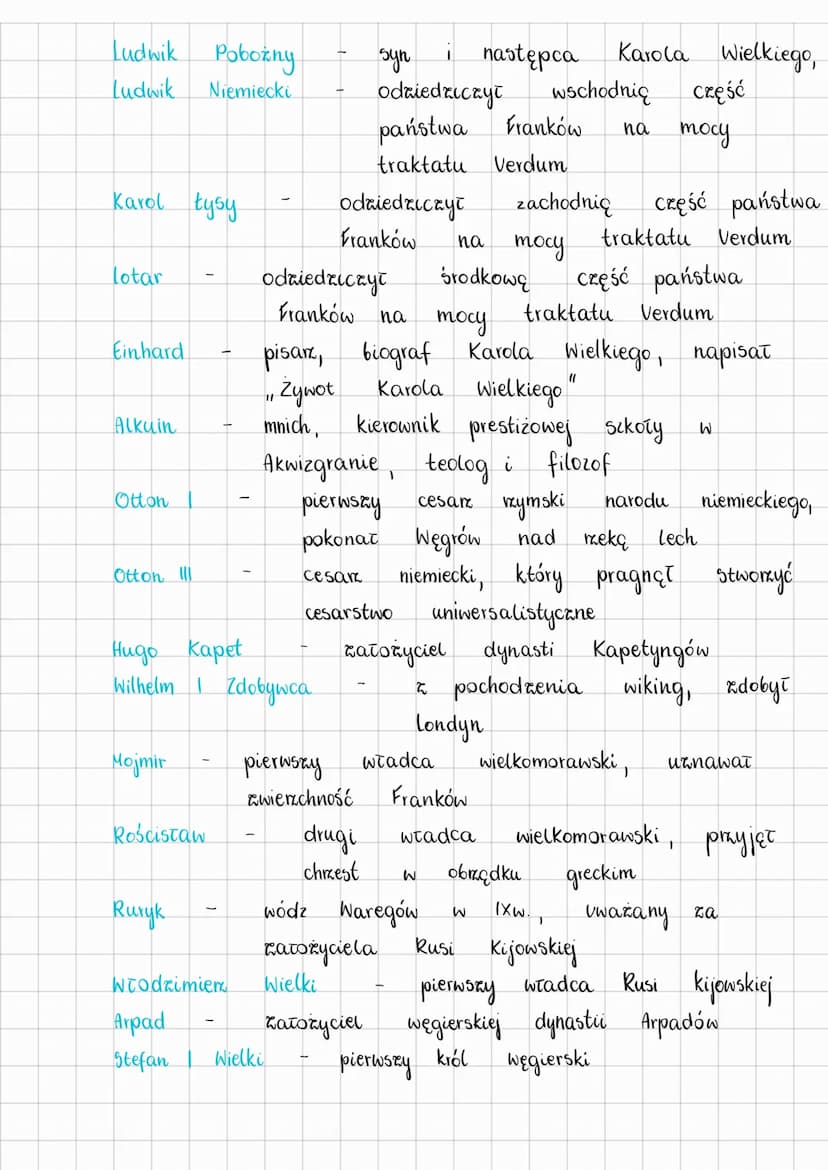 Ludwik Pobożny - syn i następca Karola Wielkiego,
Ludwik Niemiecki - odziedziczył wschodnię część
państwa Franków na mocy
traktatu Verdum
Karol Łysy - odziedziczył zachodnię część państwa
Franków na mocy traktatu Verdum
Lotar - odziedziczył środkowę część państwa
Franków na mocy traktatu Verdum
Einhard - pisarz, biograf Karola Wielkiego, napisał
„Żywot Karola Wielkiego"
Alkuin - mnich, kierownik prestiżowej szkoły w
Akwizgranie, teolog i filozof
Otton I - pierwszy cesarz rzymski narodu niemieckiego,
pokonał Węgrów nad rzekę Lech
Otton III - cesarz niemiecki, który pragnęł stworzyć
cesarstwo uniwersalistyczne
Hugo Kapet - założyciel dynasti Kapetyngów
Wilhelm I Zdobywca - z pochodzenia wiking, zdobył
Londyn
Mojmir - pierwszy władca wielkomorawski, uznawał
zwierzchność Franków
Rościsław - drugi władca wielkomorawski, przyjęł
chrzest w obrzędku greckim
Ruryk - wódz Waregów w IXw., uważany za
założyciela Rusi Kijowskiej
Włodzimierz Wielki - pierwszy władca Rusi kijowskiej
Arpad - założyciel węgierskiej dynastii Arpadów
Stefan I Wielki - pierwszy król węgierski